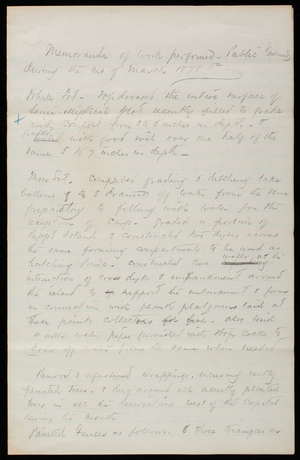 Memoranda of work performed - Public Grounds
during the mo of March 1878
White Lot. Top dressed the entire surface of
semi-elliptical plot recently filled to grade
with compost from 1 to 3 inches in depth. &
with good soil over one half of the
same 5 to 7 inches in depth -
Mon. Lot. Completed grading & ditching lake
bottom & drained of water from the same
preparatory to filling with water for the
reception of carp. graded a portion of
Island & constructed two dykes across
the same forming compartments to be used as
hatching ponds. constructed
intersection of cross dykes & embankment around
the island to support the embankment & form
in connection with plank platforms laid at
these points collectors for fish. also laid
waste water pipes furnished with stop cocks to
draw off water from the same when needed.
Removed & refastened wrappings securing newly
planted trees. & dug around all recently planted
trees in all the reservations west of the Capitol
during the month
Painted fences as follows. & three triangles on